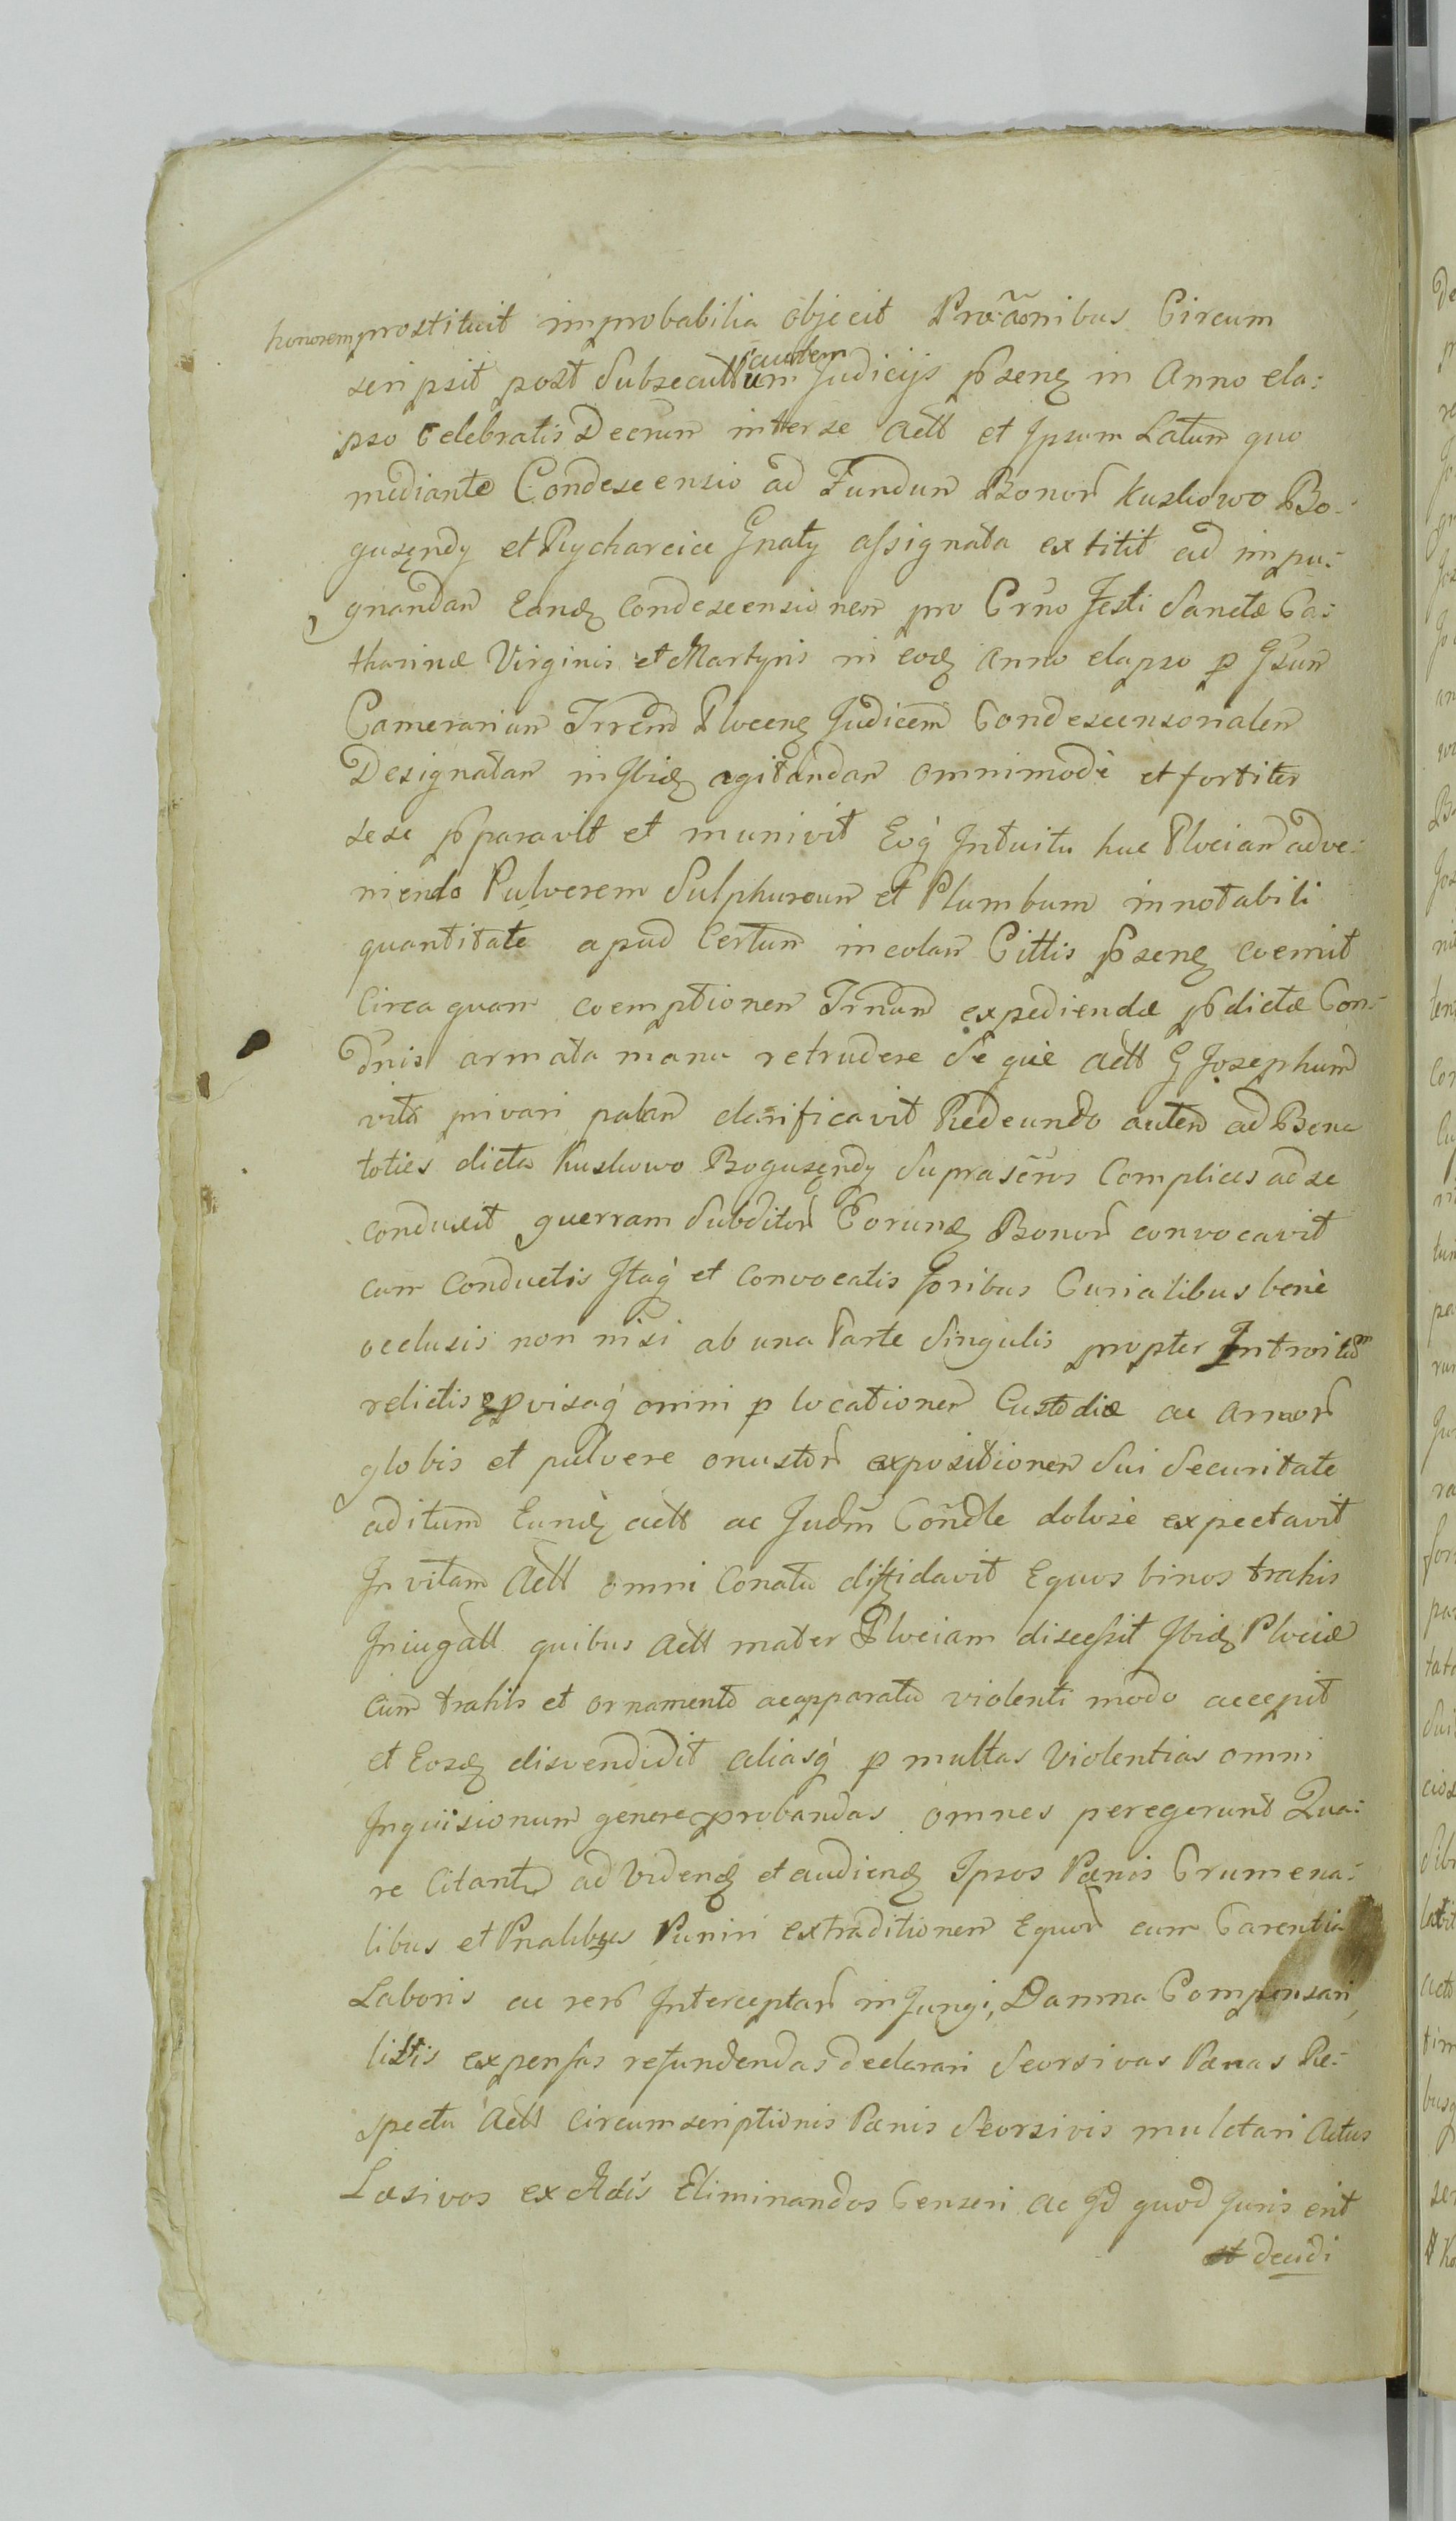 honorem prostituit improbabilia objecit Pro:āōnibus Circum
scripsit post Subsecutum autem Judicijs pþsenӡ in Anno ela:
pso Celebratis Decrum inter se Actt et Ipsum Latum quo
mediante Condescensio ad Fundum Bonor Kuskowo Bo-
guszndy et Rycharcice Gnaty assignata extitit ad impu:
gnandam Eandӡ condescensionem pro Crño Festi Sanctæ Ca:
tharinæ Virginis et Martyris in eodӡ Anno elapso p Gsum
Camerarium Trrem Plocenӡ Judicem Condescensorialem
Designatam inibidӡ agitandam omnimode et fortiter
sese pþparavit et munivit Eoq Intuitu huc Plociam adve:
niendo Pulverem Sulphureum et Plumbum in notabili
quantitate apud Certum incolam Cittis pþsenӡ coemit
Circa quam coemptionem Trnum expediendæ pþdictæ Con-
dnis armata manu retrudere Se que Actt G Josephum
vita privari palam clarificavit Redeundo autem ad Bona
toties dicta Kuskowo Boguszndy Suprascros Complices ad se
conduxit guerram Subditor Eorundӡ Bonor convocavit
cum Conductis Itaq et Convocatis Foribus Curialibus bene
occlusis non nisi ab una Parte Singulis propter Introitum
relictis pvisaq omni p locationem Custodiæ ac armor
globis et pulvere onustor expositionem Sui Securitate
aditum Eundӡ actt ac Judm Condle dolose expectavit
In vitam Actt omni Conatu diffidavit Equos binos trahis
Iniugatt quibus Actt mater Plociam discessit Ibidӡ Plociæ
Cum trahis et ornamento ac apparatu violenti modo accepit
et Eosdӡ disvendidit aliasq p multas Violentias omni
Inquisionum genere probandas omnes peregerunt Qua:
re Citantur ad Videndӡ et audiendӡ Ipsos Pænis Crumena:
libus et Pnalibus Puniri extraditionem Equor cum Carentia
Laboris ac rer Interceptar injungi, Damna Compensari,
litis expensas refundendas declarari Seorsivas Pænas Re-
spectu Actt Circumscriptionis Pænis Seorsivis mulctari Actus
Læsivos ex Actis Eliminandos Censeri ac Id quod Juris erit
decidi